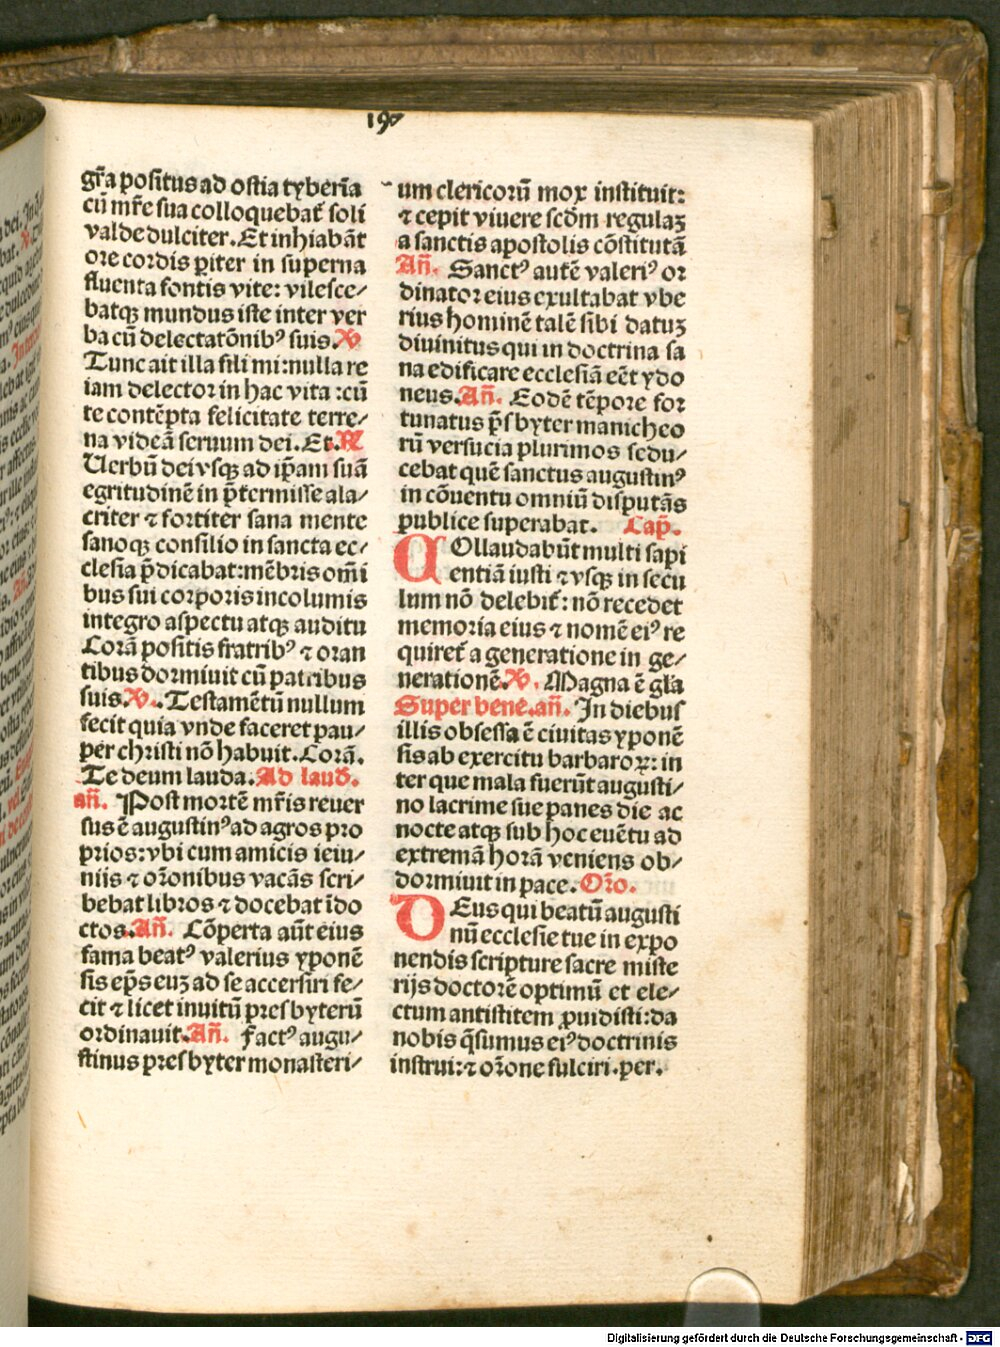 197
gr̄a positus ad ostia tyberīa
cū mr̄e sua colloquebat᷑ soli
valde dulciter. Et inhiabāt
ore cordis ꝑiter in superna
fluenta fontis vite: vilesce⸗
batqꝫ mundus iste inter ver
ba cū delectatōnibꝰ suis. ℣
Tunc ait illa fili mi: nulla re
iam delector in hac vita : cū
te contēpta felicitate terre⸗
na videā seruum dei. Et. ℟
Uerbū dei vsqꝫ ad ip̄am suā
egritudinē in p̄termisse ala⸗
criter ⁊ fortiter sana mente
sanoqꝫ consilio in sancta ec⸗
clesia p̄dicabat: mēbris om̄i
bus sui corporis incolumis
integro aspectu atqꝫ auditu
Corā positis fratribꝰ ⁊ oran
tibus dormiuit cū patribus
suis. ℣. Testamētū nullum
fecit quia vnde faceret pau⸗
per christi nō habuit. Corā.
Te deum lauda. Ad laud̄.
an̄. Post mortē mr̄is reuer
sus ē augustinꝰ ad agros pro
prios: vbi cum amicis ieiu⸗
niis ⁊ or̄onibus vacās scri⸗
bebat libros ⁊ docebat īdo
ctos. An̄. Cōperta aūt eius
fama beatꝰ valerius yponē
sis ep̄s euꝫ ad se accersiri fe⸗
cit ⁊ licet inuitū presbyterū
ordinauit. An̄. Factꝰ augu⸗
stinus presbyter monasteri⸗
um clericorū mox instituit:
⁊ cepit viuere scd̄m regulaꝫ
a sanctis apostolis cōstitutā
An̄. Sanctꝰ autē valeriꝰ or
dinator eius exultabat vbe
rius hominē talē sibi datuꝫ
diuinitus qui in doctrina sa
na edificare ecclesiā eēt ydo
neus. An̄. Eodē tēpore for
tunatus p̄sbyter manicheo
rū versucia plurimos sedu⸗
cebat quē sanctus augustinꝰ
in cōuentu omniū disputās
publice superabat. Cap̄.
COllaudabūt multi sapi
entiā iusti ⁊ vsqꝫ in secu
lum nō delebit᷑: nō recedet
memoria eius ⁊ nomē eiꝰ re
quiret᷑ a generatione in ge⸗
nerationē. ℣. Magna ē gl̄a
Super bene. an̄. In diebus
illis obsessa ē ciuitas yponē
sis ab exercitu barbaroꝝ: in
ter que mala fuerūt augusti⸗
no lacrime sue panes die ac
nocte atqꝫ sub hoc euētu ad
extremā horā veniens ob⸗
dormiuit in pace. Or̄o.
DEus qui beatū augusti
nū ecclesie tue in expo
nendis scripture sacre miste
rijs doctorē optimū et ele⸗
ctum antistitem ꝓuidisti: da
nobis q̄sumus eiꝰ doctrinis
instrui: ⁊ or̄one fulciri. per.
Digitalisierung gefördert durch die Deutsche Forschungsgemeinschaft - DFG